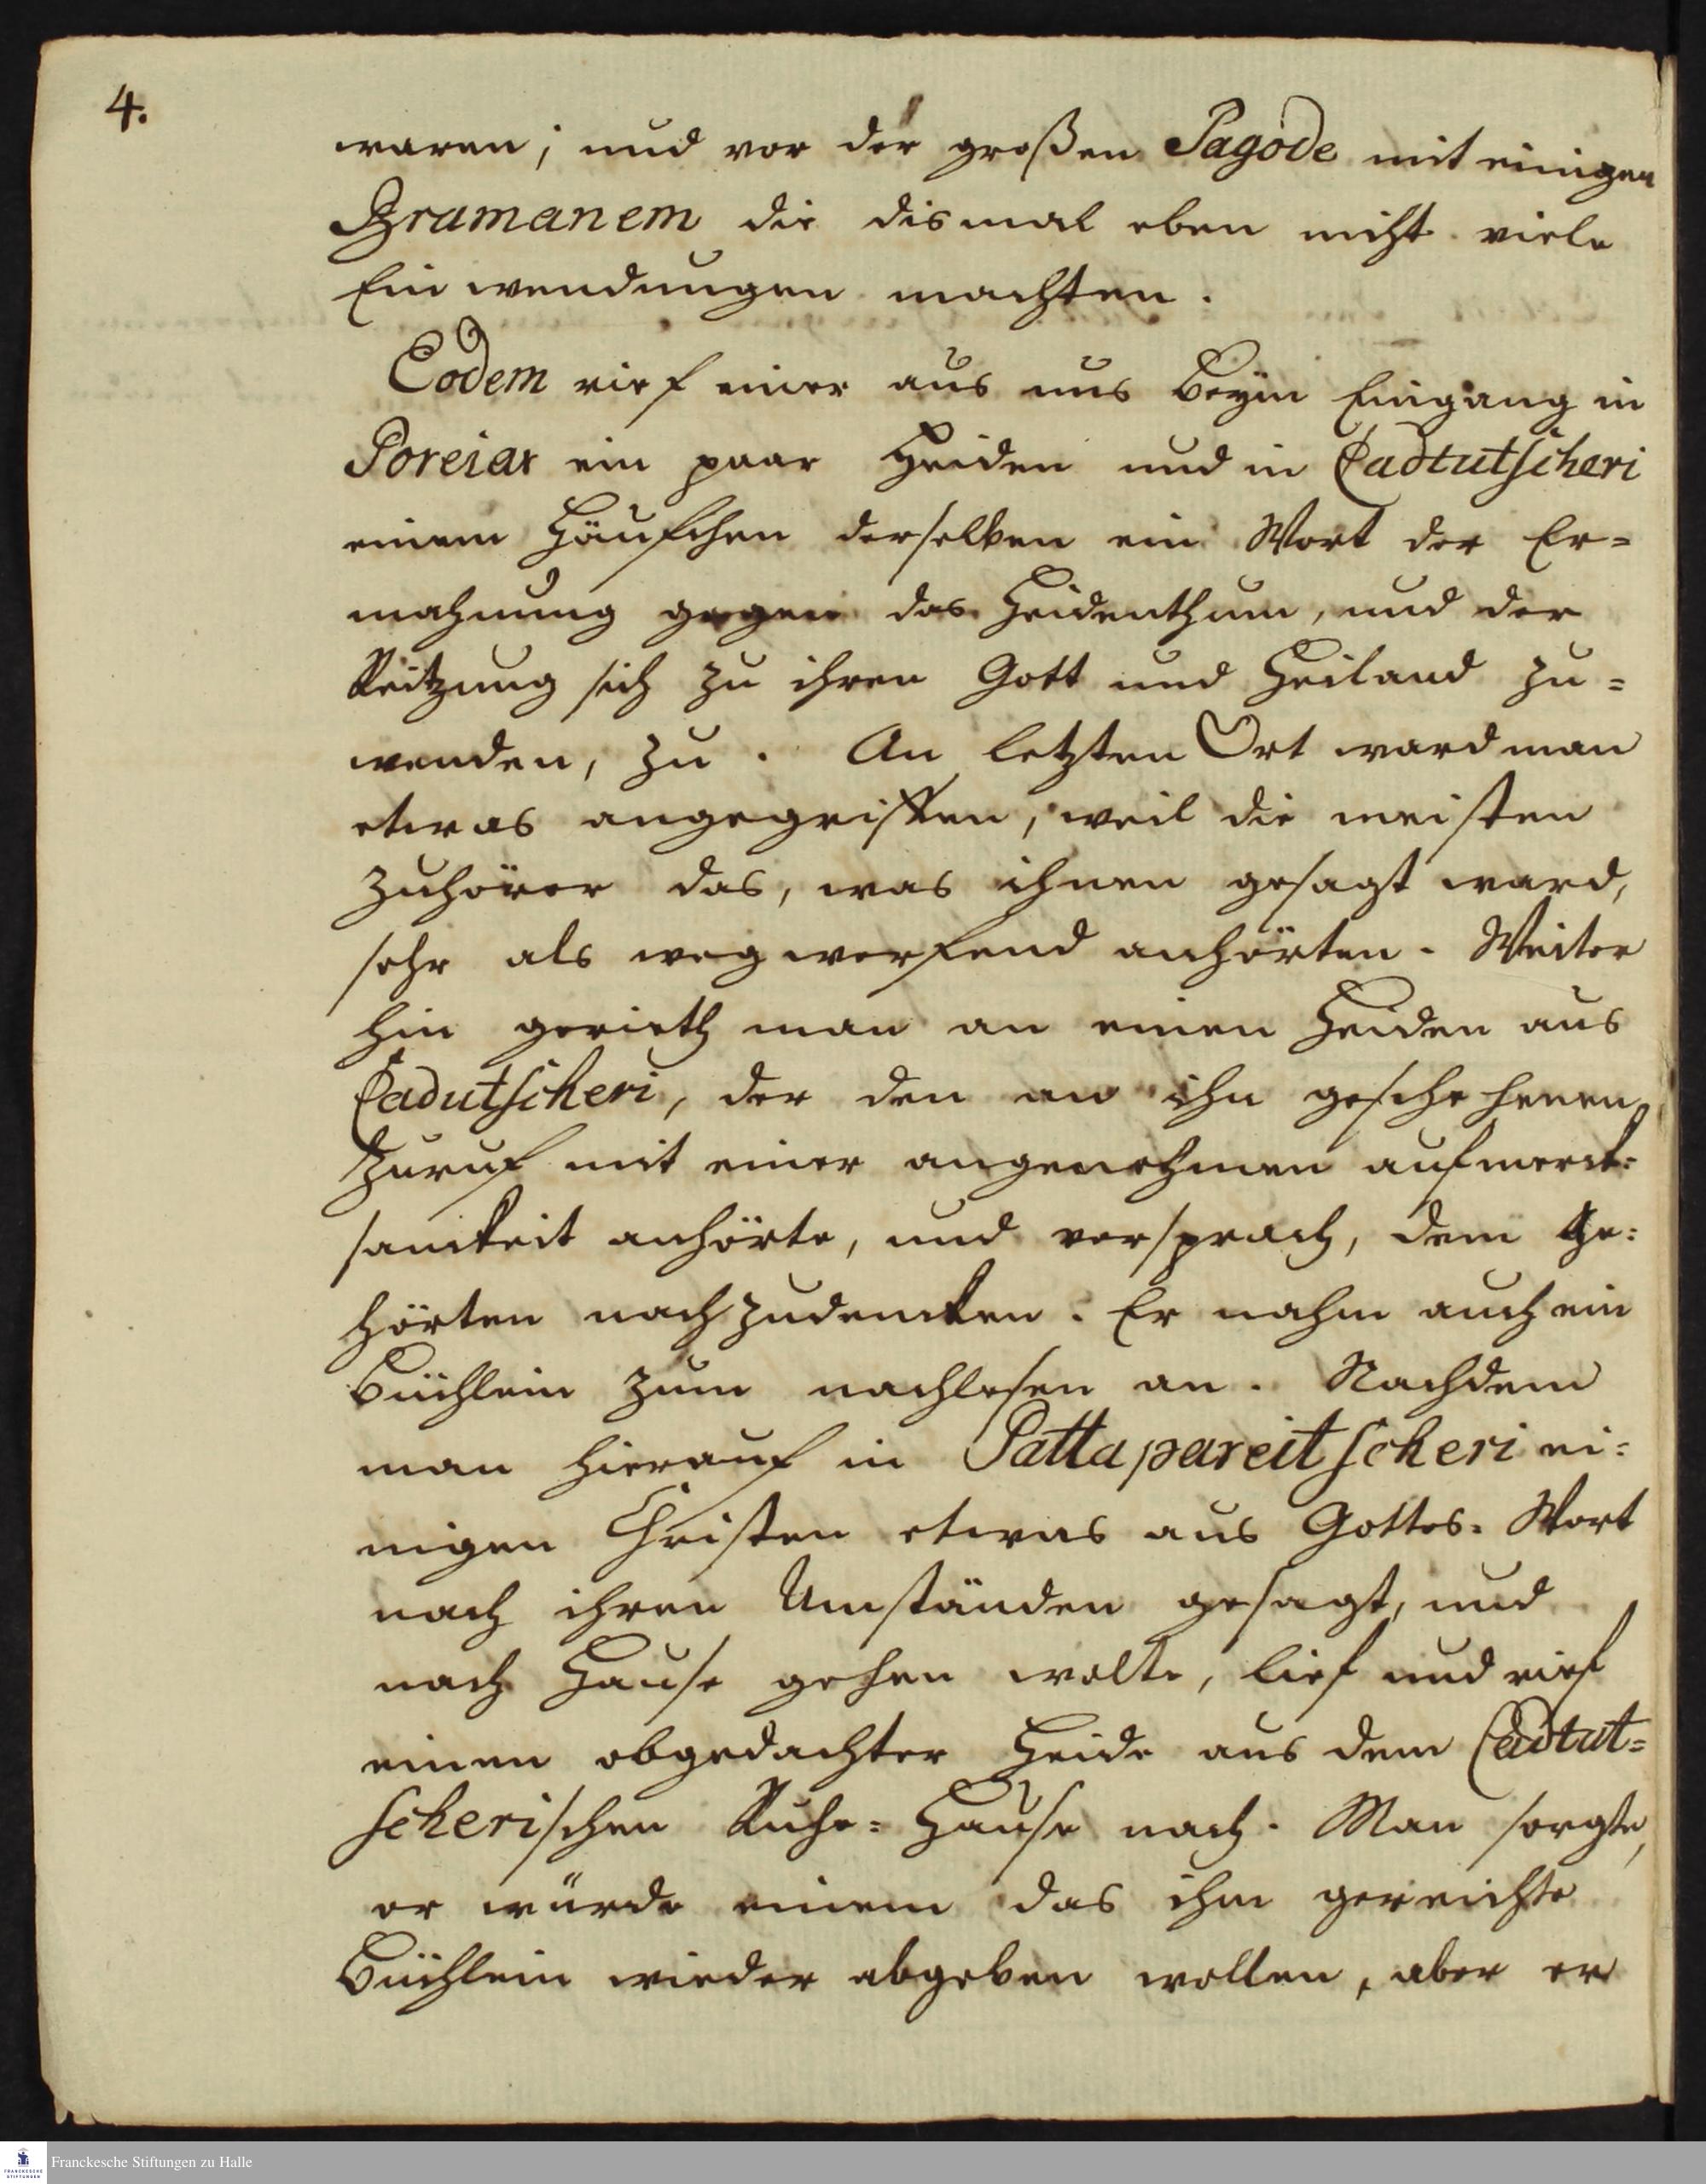 4.
waren; und vor der großen Pagode mit einigen
Bramanem die dismal eben nicht viele
Einwendungen machten.
Eodem rief einer aus uns beym Eingang in
Poreiar ein paar Heiden und in Cadtutscheri
einem Häufchen derselben ein Wort der Er=
mahnung gegen das Heidenthum, und der
Reitzung sich zu ihren Gott und Heiland zu=
wenden, zu. An letzten Ort ward man
etwas angegriffen, weil die meisten
Zuhörer das, was ihnen gesagt ward,
sehr als wegwerfend anhörten. Weiter
hin gerieth man an einen Heiden aus
Cadutscheri, der den an ihn geschehenen
Zuruf mit einer angenehmen aufmerck=
samkeit anhörte, und versprach, dem Ge=
hörten nachzudencken. Er nahm auch ein
Büchlein zum nachlesen an. Nachdem
man hierauf in Pattapareitscheri ei=
nigen Christen etwas aus Gottes=Wort
nach ihren Umständen gesagt, und
nach Hause gehen wolte, lief und rief
einen obgedachter Heide aus dem Cadtut=
scherischen Ruhe=Hause nach. Man sorgte,
er würde einem das ihm gereichte
Büchlein wieder abgeben wollen, aber er
FRANCKESCHE STIFTUNGEN
Franckesche Stiftungen zu Halle